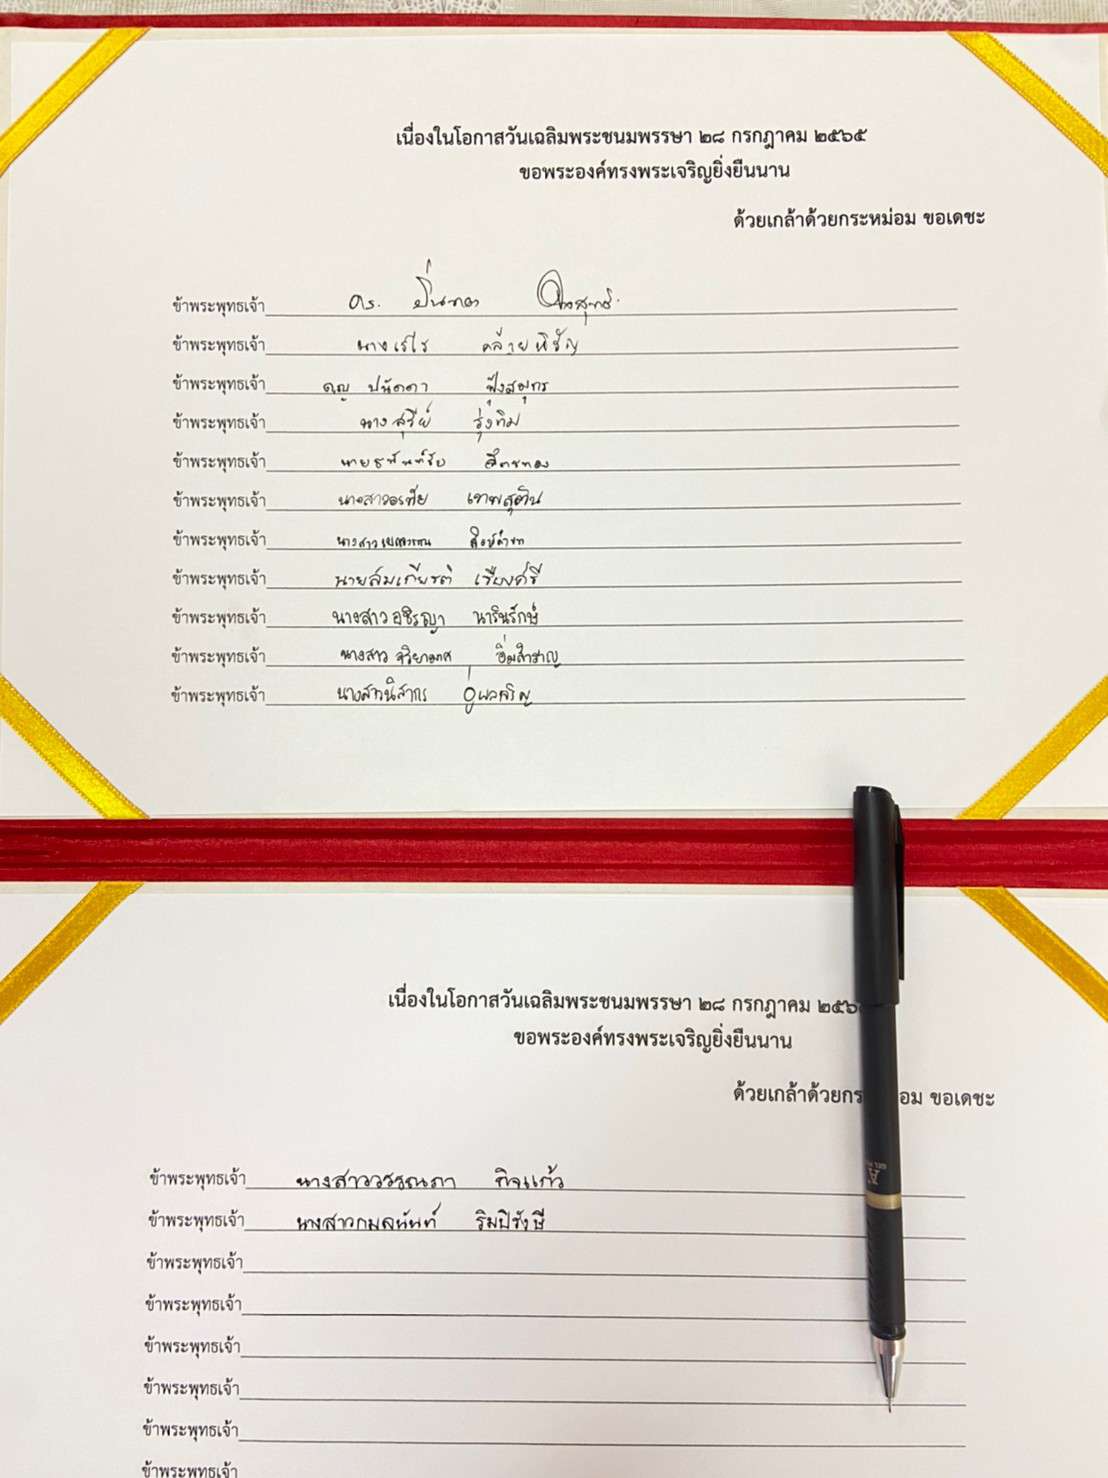 เนื่องในโอกาสวันเฉลิมพระชนมพรรษา ๒๘ กรกฎาคม ๒๕๖๕
ขอพระองค์ทรงพระเจริญยิ่งยืนนาน
ด้วยเกล้าด้วยกระหม่อม ขอเดชะ
ข้าพระพุทธเจ้า ดร.
ข้าพระพุทธเจ้า นางเรไร คล้ายหิรัญ
ข้าพระพุทธเจ้า ปนัดดา
ข้าพระพุทธเจ้า นางสุรีย์ รุ่งทิม
ข้าพระพุทธเจ้า
ข้าพระพุทธเจ้า นางสาวอรทัย เทพสุติน
ข้าพระพุทธเจ้า นางสาว
ข้าพระพุทธเจ้า นายสมเกียรติ เรืองศรี
ข้าพระพุทธเจ้า นางสาวอชิรญา นารินรักษ์
ข้าพระพุทธเจ้า นางสาว อิ่มสำราญ
ข้าพระพุทธเจ้า นางสาวนิสากร
เนื่องในโอกาสวันเฉลิมพระชนมพรรษา ๒๘ กรกฎาคม ๒๕๖
ขอพระองค์ทรงพระเจริญยิ่งยืนนาน
ด้วยเกล้าด้วยกร อม ขอเดชะ
ข้าพระพุทธเจ้า นางสาววรรณภา กิจแก้ว
ข้าพระพุทธเจ้า นางสาวกมลนันท์ ริมปิรังษี
ข้าพระพุทธเจ้า
ข้าพระพุทธเจ้า
ข้าพระพุทธเจ้า
ข้าพระพุทธเจ้า
ข้าพระพุทธเจ้า
ข้าพระพุทธเจ้า